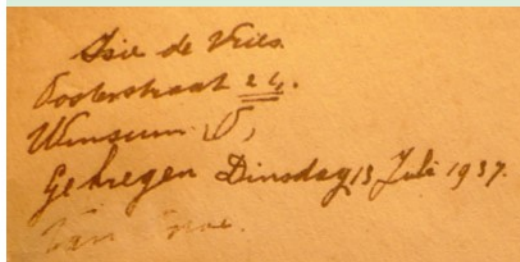 Isie de Vries
Oosterstraat 24.
Winsum
Gekregen Dinsdag 13 Juli 1937.
van